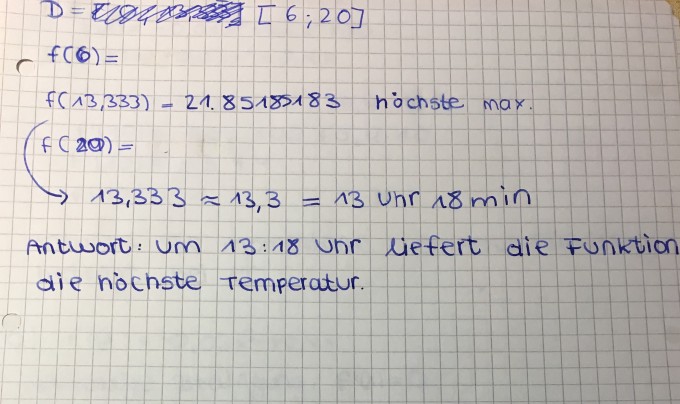 D = [6;20]
f(6)=
f(13,333) = 21.85185183 höchste max.
f(20)=
→ 13,333 ≈ 13,3 = 13 Uhr 18 min
Antwort: um 13:18 Uhr liefert die Funktion
die höchste Temperatur.